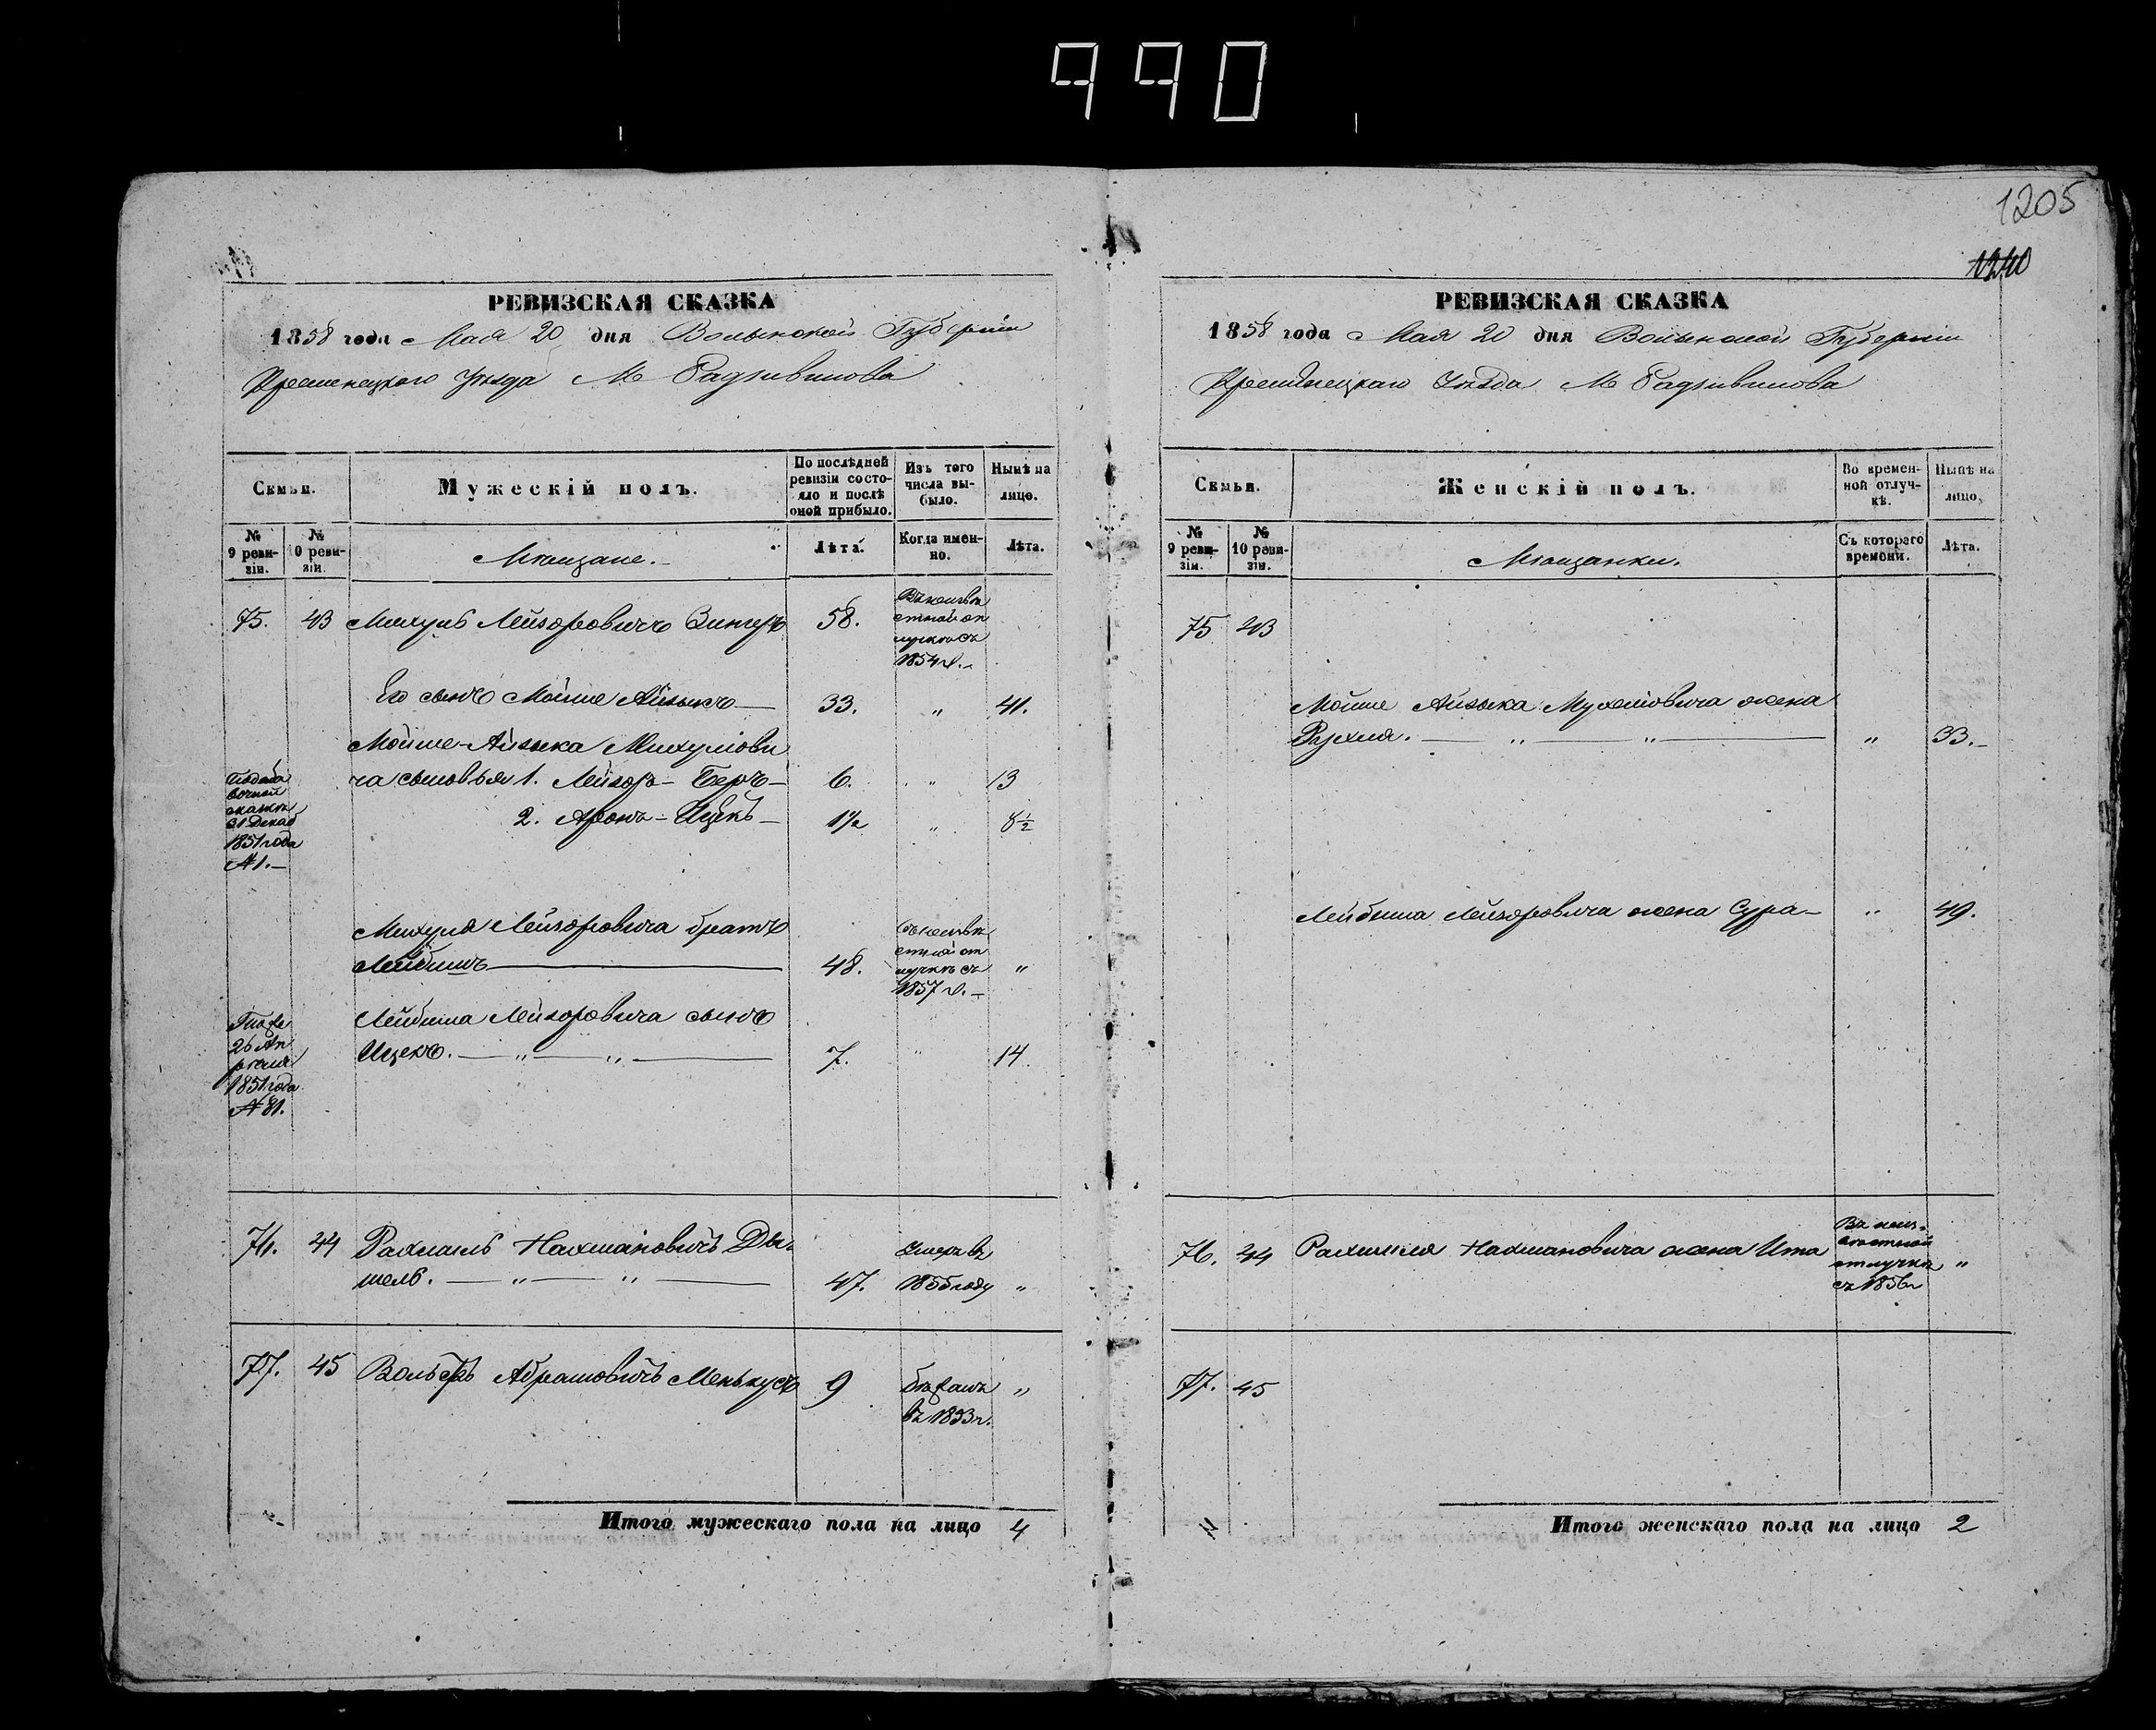 990
1205
1240
РЕВИЗСКАЯ СКАЗКА
1858 года Мая 20 дня Волынской Губерніи
Кременецкого Уѣзда М Радзивилова
Семьи.
Мужескій полъ.
По послѣдней ревизіи состояло и послѣ оной прибыло.
Изъ того числа выбыло.
Нынѣ на лицо.
№ 9 ревизіи.
№ 10 ревизіи.
Мѣщане.
Лѣта.
Когда именно.
Лѣта.
75. 43 Михуль Лейзоровичъ Зингеръ 58.
Въ неизвѣстной отлучкѣ съ 1854 г.
Его сынъ Мойше Айзыкъ 33. " 41.
Мойше-Айзыка Михулови
ча сыновья 1. Лейзоръ-Беръ 6. " 13
2. Аронъ-Ицекъ 1½ " 8½
сказкѣ
31 Декаб
1851 года
№ 1.
Михуля Лейзоровича братъ
Лейбишъ 48. "
въ неизвѣстной отлучкѣ съ 1857 г.
Лейбиша Лейзоровича сынъ
Ицекъ. " " 7. " 14
26 Ап
рѣля
1851 года
№ 81.
76. 44 Рахмиль Нахмановичъ Ды-
шель. " " 47. умеръ въ 1855 году "
77. 45 Вольфъ Абрамовичъ Менькусъ 9 бѣжалъ въ 1853 г. "
Итого мужескаго пола на лицо 4
РЕВИЗСКАЯ СКАЗКА
1858 года Мая 20 дня Волынской Губерніи
Кременецкаго Уѣзда М Радзивилова
Семьи.
Женскій полъ.
Во временной отлучкѣ.
Нынѣ на лицо.
№ 9 ревизіи.
№ 10 ревизіи.
Мѣщанки.
Съ котораго времени.
Лѣта.
75 43
Мойше Айзыка Мухелювича жена
Рухля. " " " 33.
Лейбиша Лейзоровича жена Сура " 49.
76. 44 Рахмиля Нахмановича жена Ита "
Въ неизвѣстной отлучкѣ съ 1856 г
77. 45
Итого женскаго пола на лицо 2